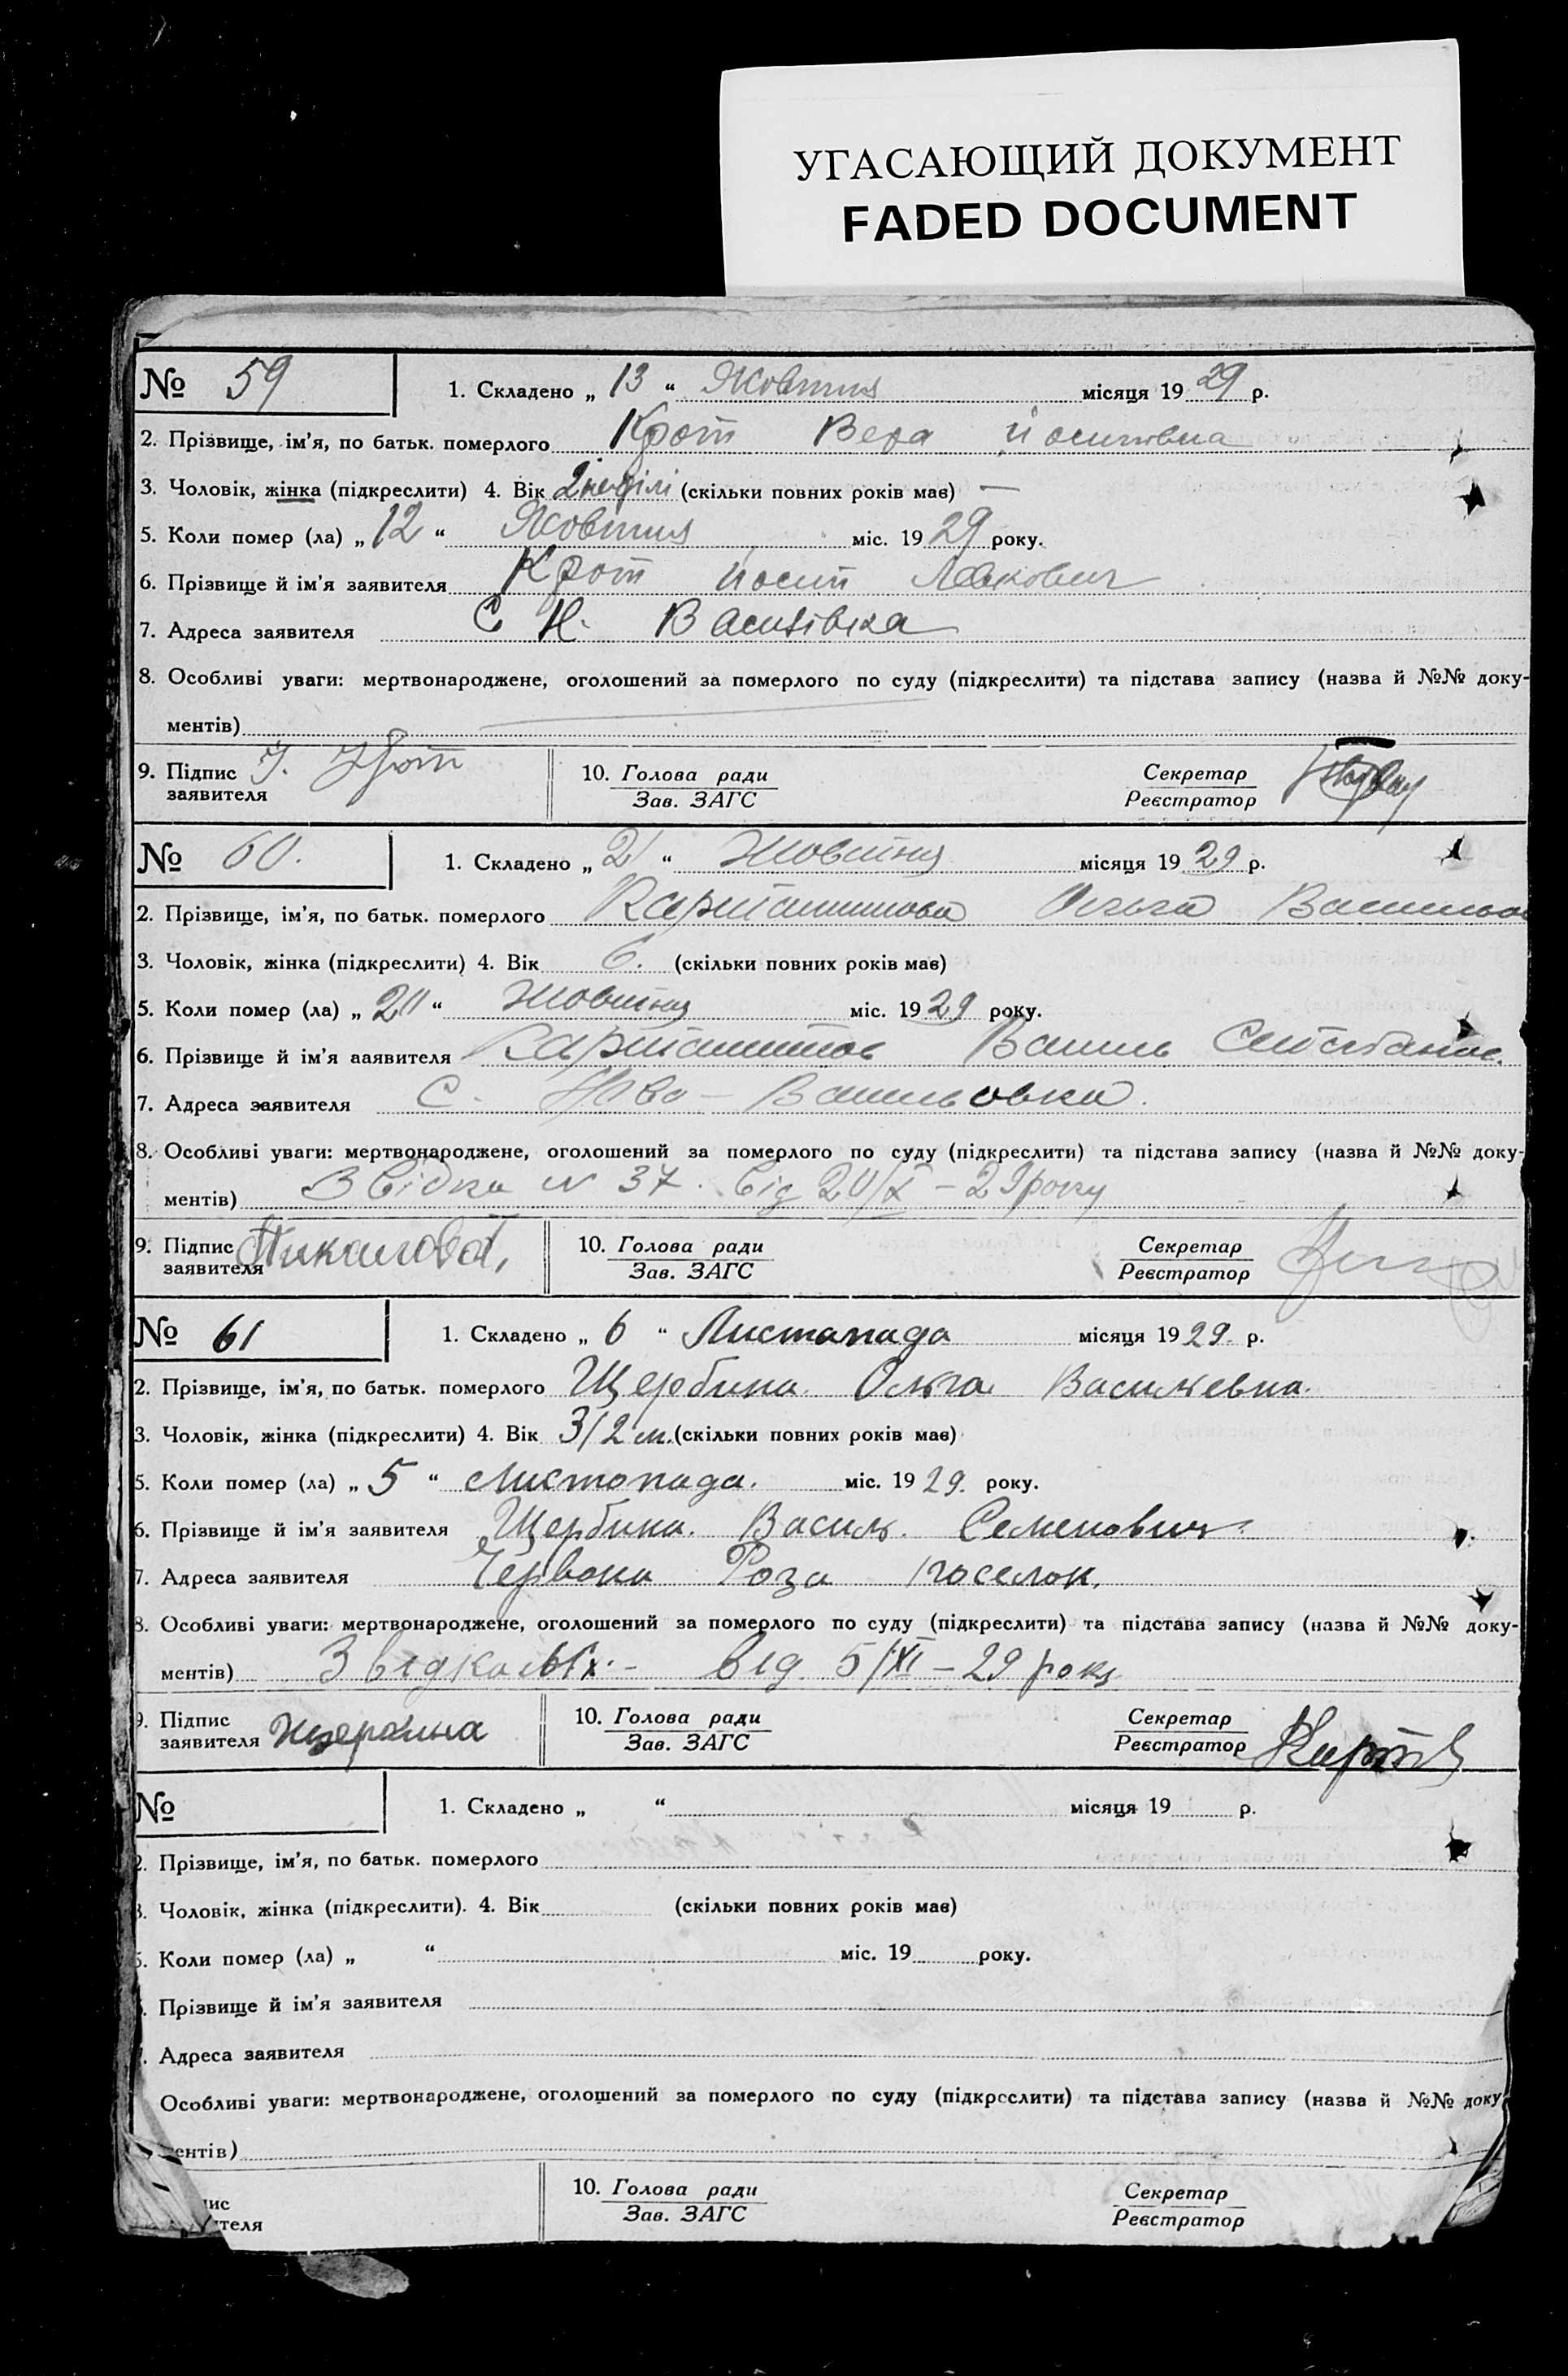 УГАСАЮЩИЙ ДОКУМЕНТ
FADED DOCUMENT
№ 59 1. Складено „ 13 “ Жовтня місяця 19 29 р.
2. Прізвище, ім'я, по батьк. померлого Крот Вера Йосиповна
3. Чоловік, жінка (підкреслити) 4. Вік 2 неділі (скільки повних років має) —
5. Коли помер (ла) „ 12 “ Жовтня міс. 19 29 року.
6. Прізвище й ім'я заявителя Крот Йосип
7. Адреса заявителя С Н. Василівка
8. Особливі уваги: мертвонароджене, оголошений за померлого по суду (підкреслити) та підстава запису (назва й №№ доку-
ментів)
9. Підпис заявителя Й. Крот 10. Голова ради Зав. ЗАГС Секретар Реєстратор
№ 60. 1. Складено „ 21 “ Жовтня місяця 19 29 р.
2. Прізвище, ім'я, по батьк. померлого Ольга
3. Чоловік, жінка (підкреслити) 4. Вік 6. (скільки повних років має)
5. Коли помер (ла) „ “ Жовтня міс. 19 29 року.
6. Прізвище й ім'я ааявителя Василь
7. Адреса заявителя С. Ново-Васильовка.
8. Особливі уваги: мертвонароджене, оголошений за померлого по суду (підкреслити) та підстава запису (назва й №№ доку-
ментів) Звідка N 37. від - 29 року
9. Підпис заявителя 10. Голова ради Зав. ЗАГС Секретар Реєстратор
№ 61 1. Складено „ 6 “ Листапада місяця 19 29. р.
2. Прізвище, ім'я, по батьк. померлого Щербина Ольга Васильевна.
3. Чоловік, жінка (підкреслити) 4. Вік 3/2 м. (скільки повних років має)
5. Коли помер (ла) „ 5 “ Листопада. міс. 19 29. року.
6. Прізвище й ім'я заявителя Щербина. Василь. Семенович.
7. Адреса заявителя Червона Роза поселок.
8. Особливі уваги: мертвонароджене, оголошений за померлого по суду (підкреслити) та підстава запису (назва й №№ доку-
ментів) Звідка від. 5/XI - 29 року
9. Підпис заявителя Щербина 10. Голова ради Зав. ЗАГС Секретар Реєстратор
№ 1. Складено „ “ місяця 19 р.
2. Прізвище, ім'я, по батьк. померлого
3. Чоловік, жінка (підкреслити). 4. Вік (скільки повних років має)
5. Коли помер (ла) „ “ міс. 19 року.
. Прізвище й ім'я заявителя
. Адреса заявителя
Особливі уваги: мертвонароджене, оголошений за померлого по суду (підкреслити) та підстава запису (назва й №№ доку
ентів)
ис теля 10. Голова ради Зав. ЗАГС Секретар Реєстратор